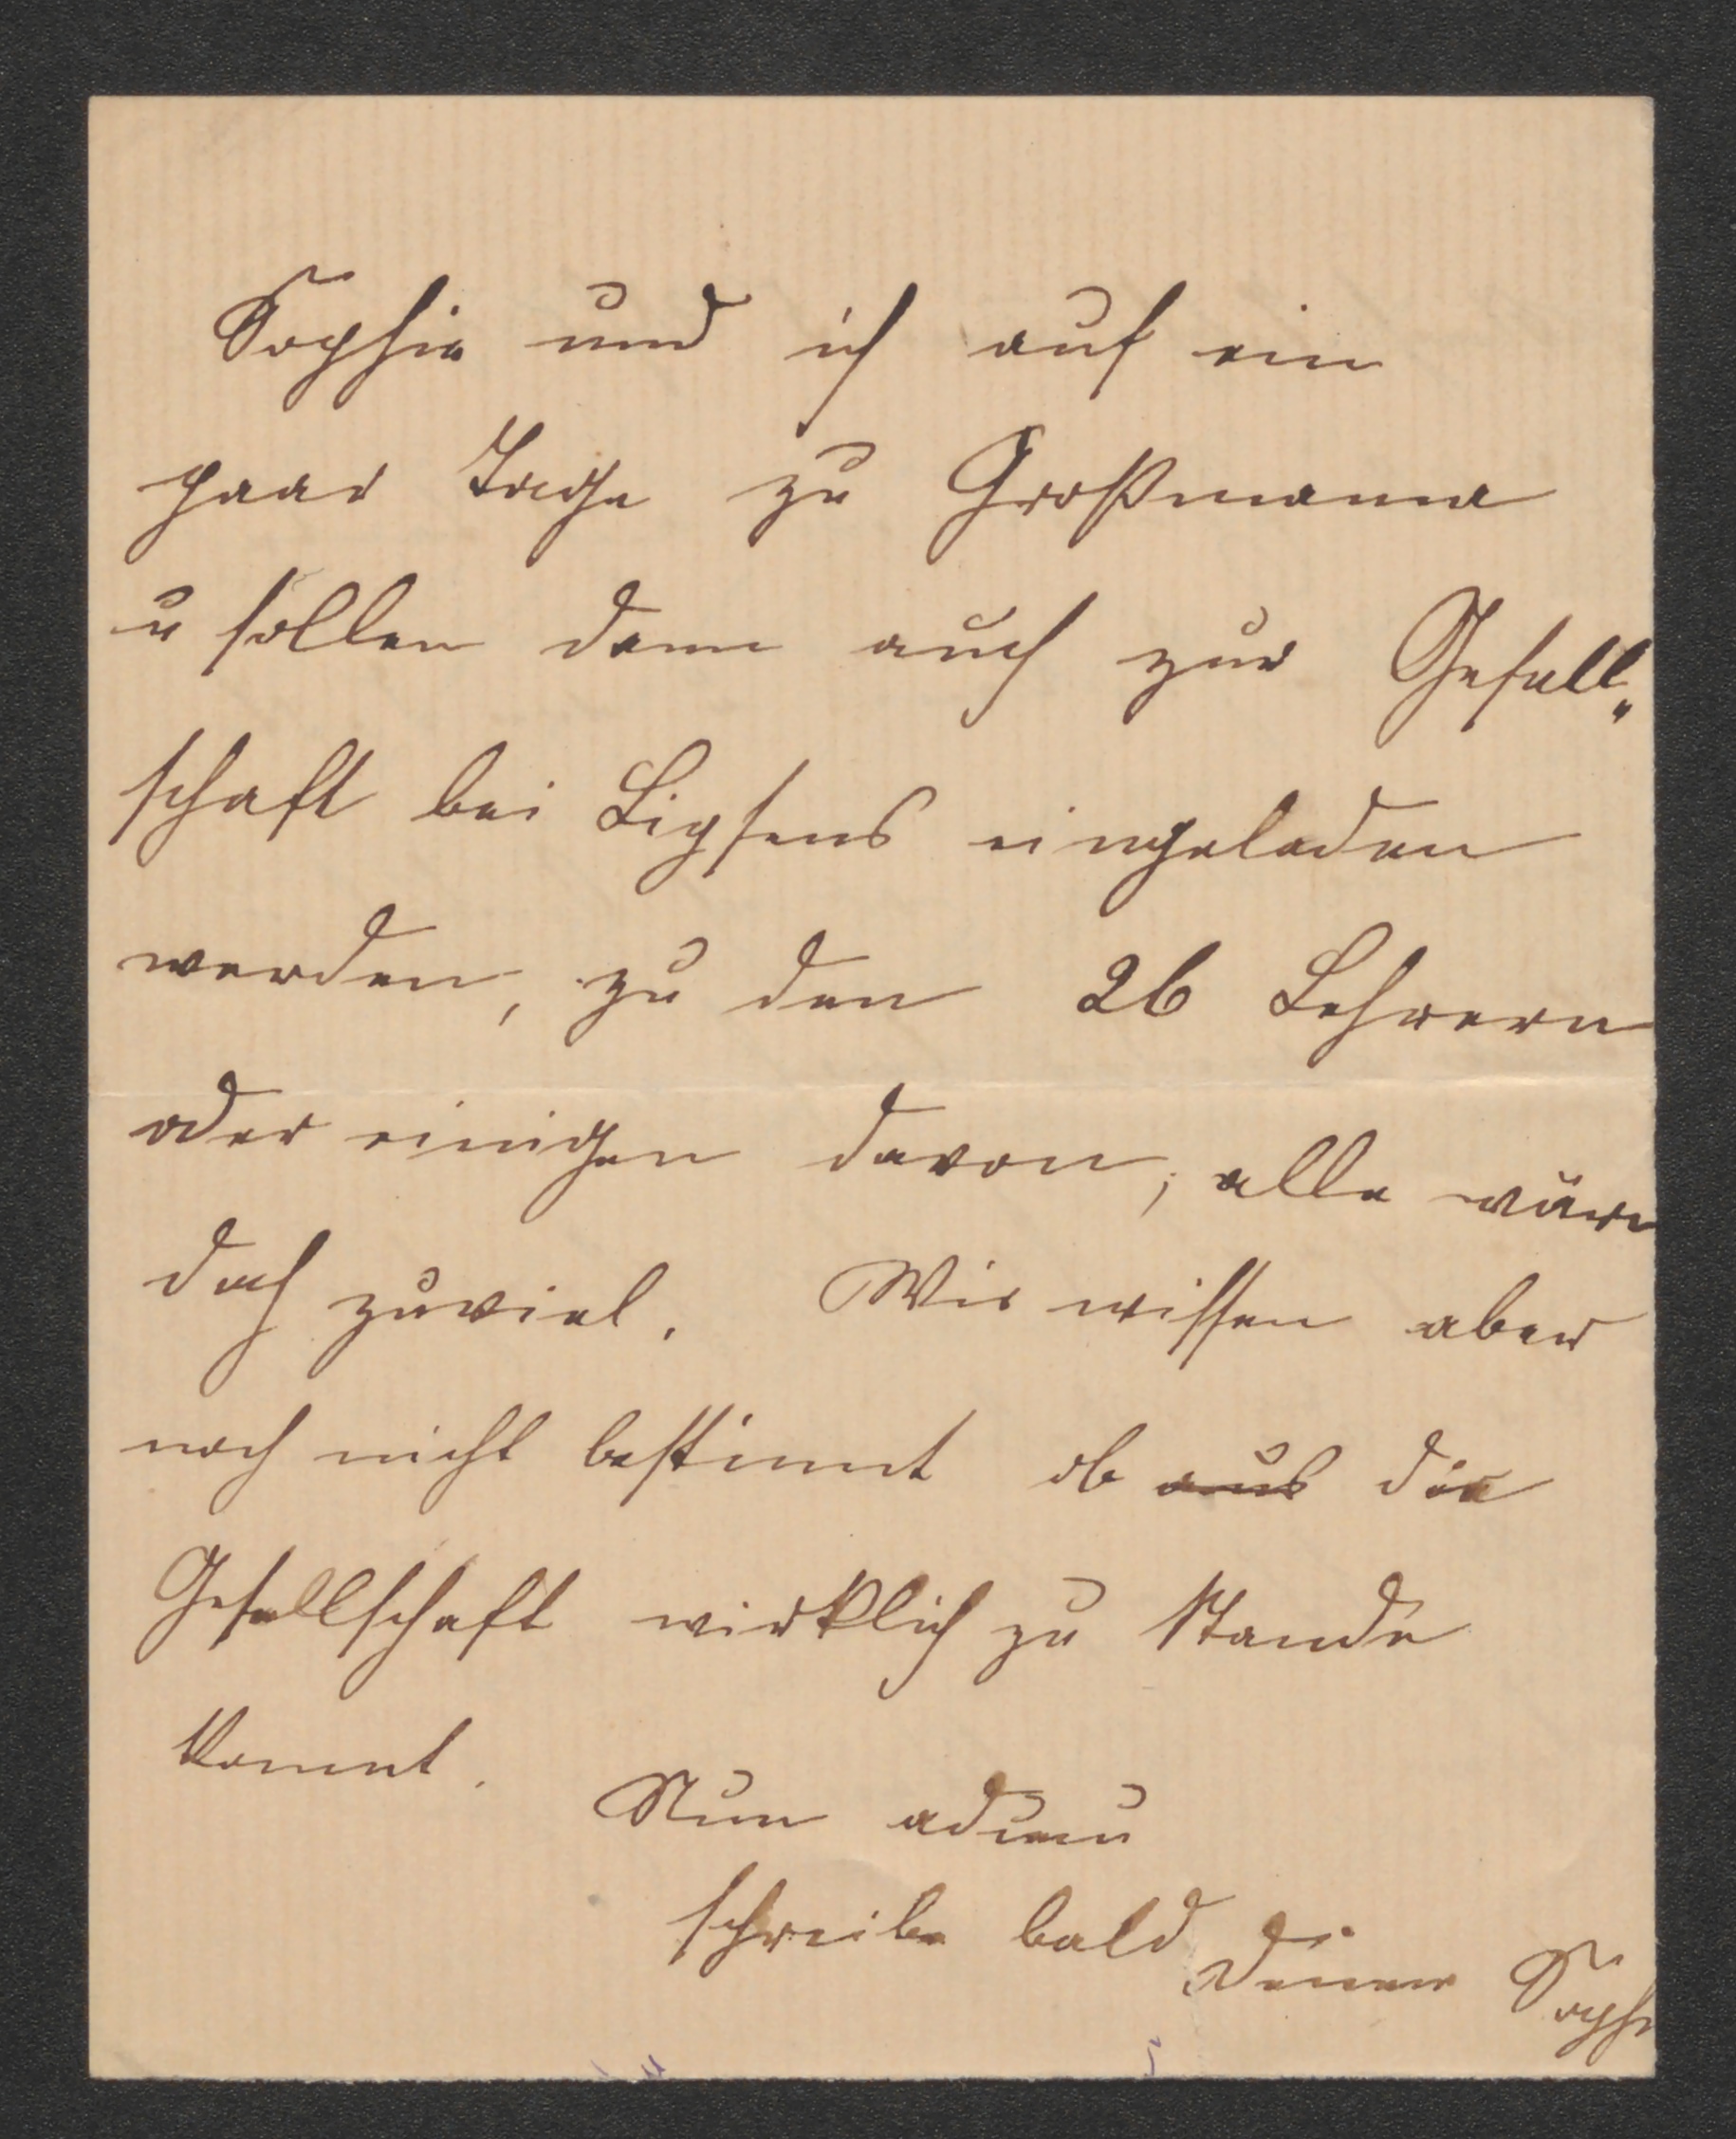 Sophie und ich auf ein
paar Tage zu Großmama
u sollen dann auch zur Gesell„
schaft bei Lipsens eingeladen
werden, zu den 26 Lehrern
oder einigen davon, alle wären
doch zuviel. Wir wissen aber
noch nicht bestimmt ob aus die
Gesellschaft wirklich zu stande
kommt.
Nun adieu
schreibe bald
Deiner Sophie